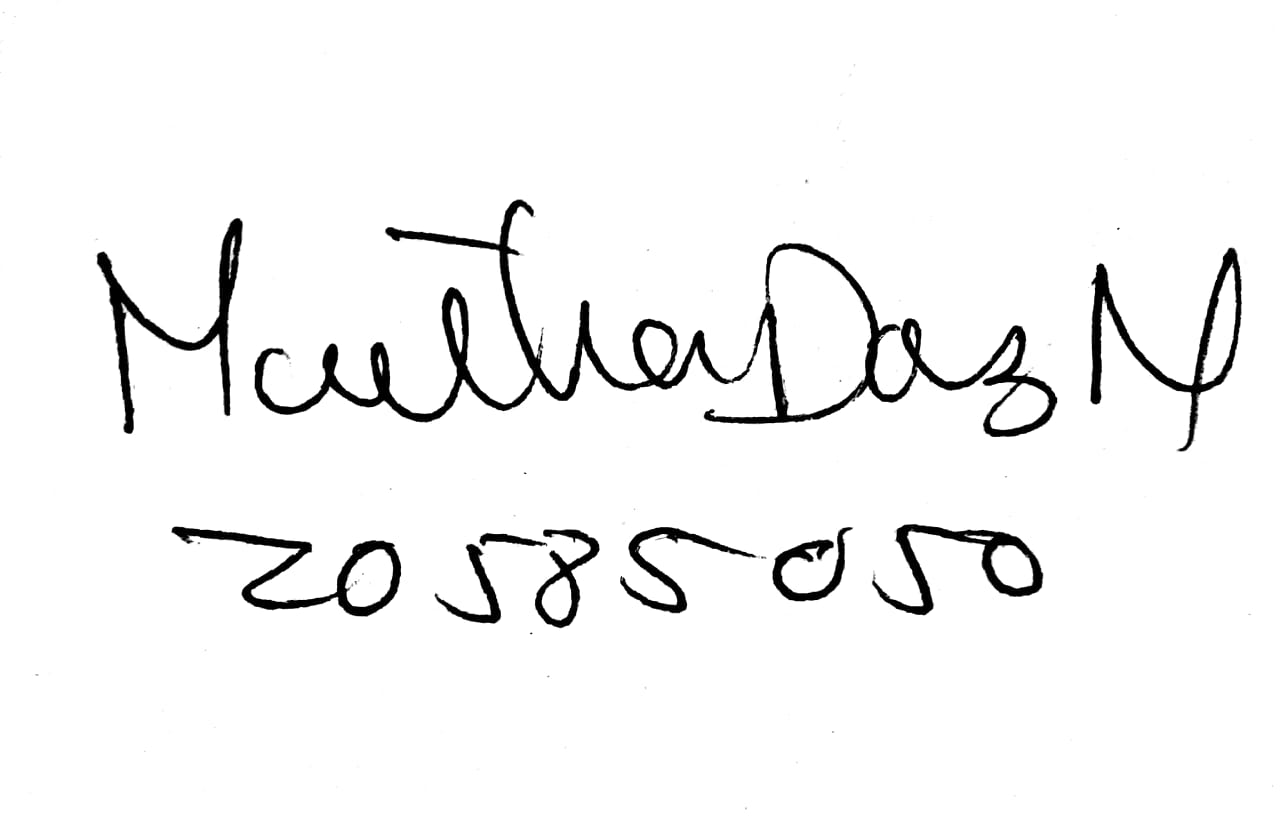 Martha Daz M
20585050